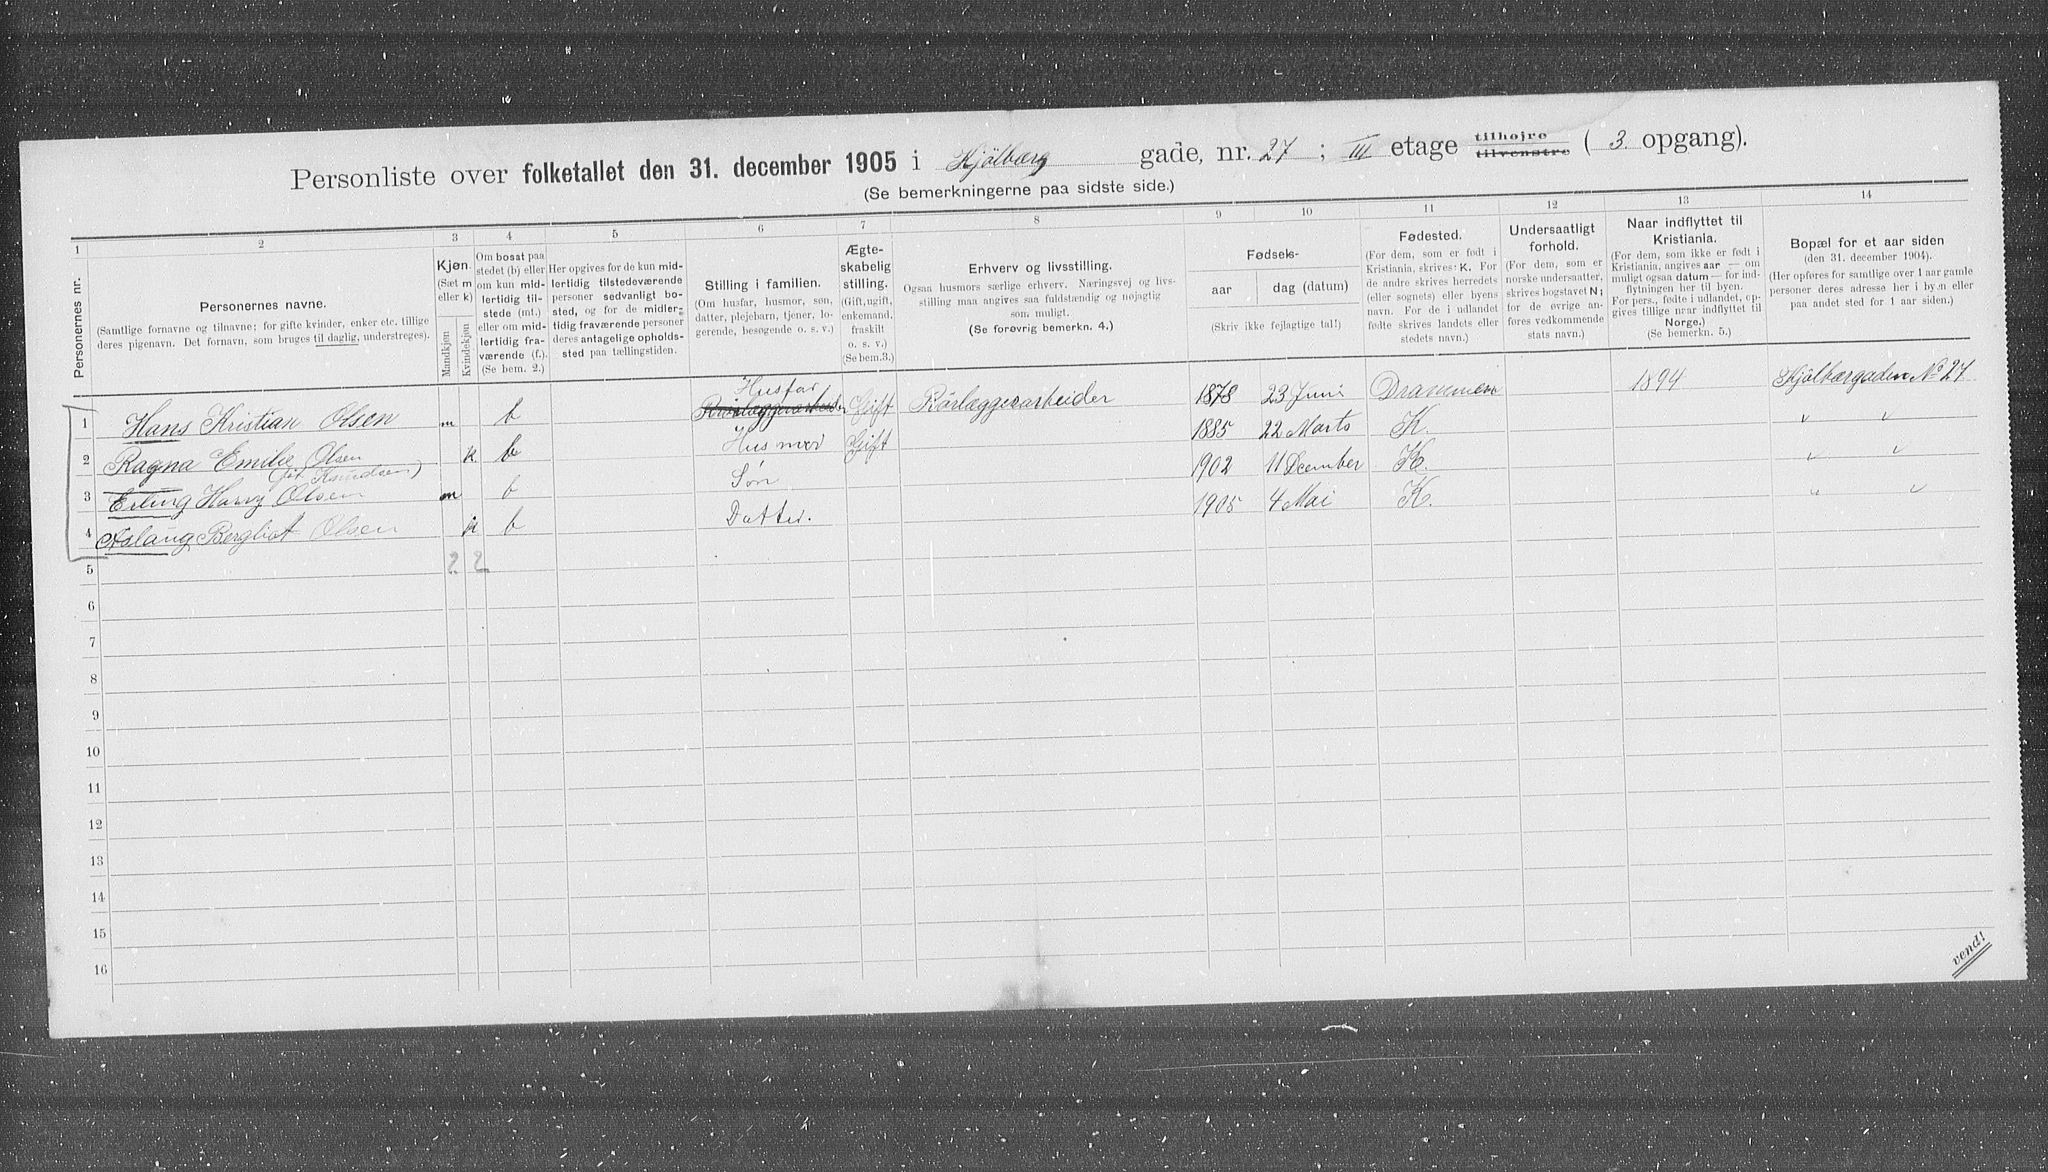 Personliste over folketallet den 31. december 1905 i Kjölberg gade, nr. 27 ; III etage tilhøjre tilvenstre ( 3. opgang).
(Se bemerkningerne paa sidste side.)
1 2 3 4 5 6 7 8 9 10 11 12 13 14
Personernes nr.
Personernes navne.
(Samtlige fornavne og tilnavne; for gifte kvinder, enker etc. tillige
deres pigenavn. Det fornavn, som bruges til daglig, understreges).
Kjøn.
(Sæt m
eller k)
Mandkjøn
Kvindekjøn
Om bosat paa
stedet (b) eller
om kun mid-
lertidig til-
stede (mt.)
eller om mid-
lertidig fra-
værende (f.).
(Se bem. 2.)
Her opgives for de kun mid-
lertidig tilstedeværende
personer sedvanligt bo-
sted, og for de midler-
tidig fraværende personer
deres antagelige opholds-
sted paa tællingstiden.
Stilling i familien.
(Om husfar, husmor, søn,
datter, plejebarn, tjener, lo-
gerende, besøgende o. s. v.)
Ægte-
skabelig
stilling.
(Gift, ugift,
enkemand,
fraskilt
o. s. v.)
(Se bem.3.)
Erhverv og livsstilling.
Ogsaa husmors særlige erhverv. Næringsvej og livs-
stilling maa angives saa fuldstændig og nøjagtig
som muligt.
(Se forøvrig bemerkn. 4.)
Fødsels-
aar
dag (datum)
(Skriv ikke fejlagtige tal!)
Fødested.
(For dem, som er født i
Kristiania, skrives: K. For
de andre skrives herredets
(eller sognets) eller byens
navn. For de i udlandet
fødte skrives landets eller
stedets navn.)
Undersaatligt
forhold.
(For dem, som er
norske undersaatter,
skrives bogstavet N;
for de øvrige an-
føres vedkommende
stats navn.)
Naar indflyttet til
Kristiania.
(For dem, som ikke er født i
Kristiania, angives aar — om
muligt ogsaa datum — for ind-
flytningen her til byen.
For pers., fødte i udlandet, op-
gives tillige naar indflyttet til
Norge.)
(Se bemerkn. 5.)
Bopæl for et aar siden
(den 31. december 1904).
(Her opføres for samtlige over 1 aar gamle
personer deres adresse her i byen eller
paa andet sted for 1 aar siden.)
Husfar
1 Hans Kristian Olsen m b Rörlæggerarbeider Gift Rörlæggerarbeider 1878 23 Juni Drammen 1894 Kjölberggaden No 27
2 Ragna Emilie Olsen k. b Husmor Gift 1885 22 Marts K. " "
(föt Knudsen)
3 Erling Harry Olsen m b Søn 1902 11 December K. " "
4 Aslaug Bergliot Olsen k b Datter. 1905 4 Mai K. " "
5 2 2
6
7
8
9
10
11
12
13
14
15
16
vend!